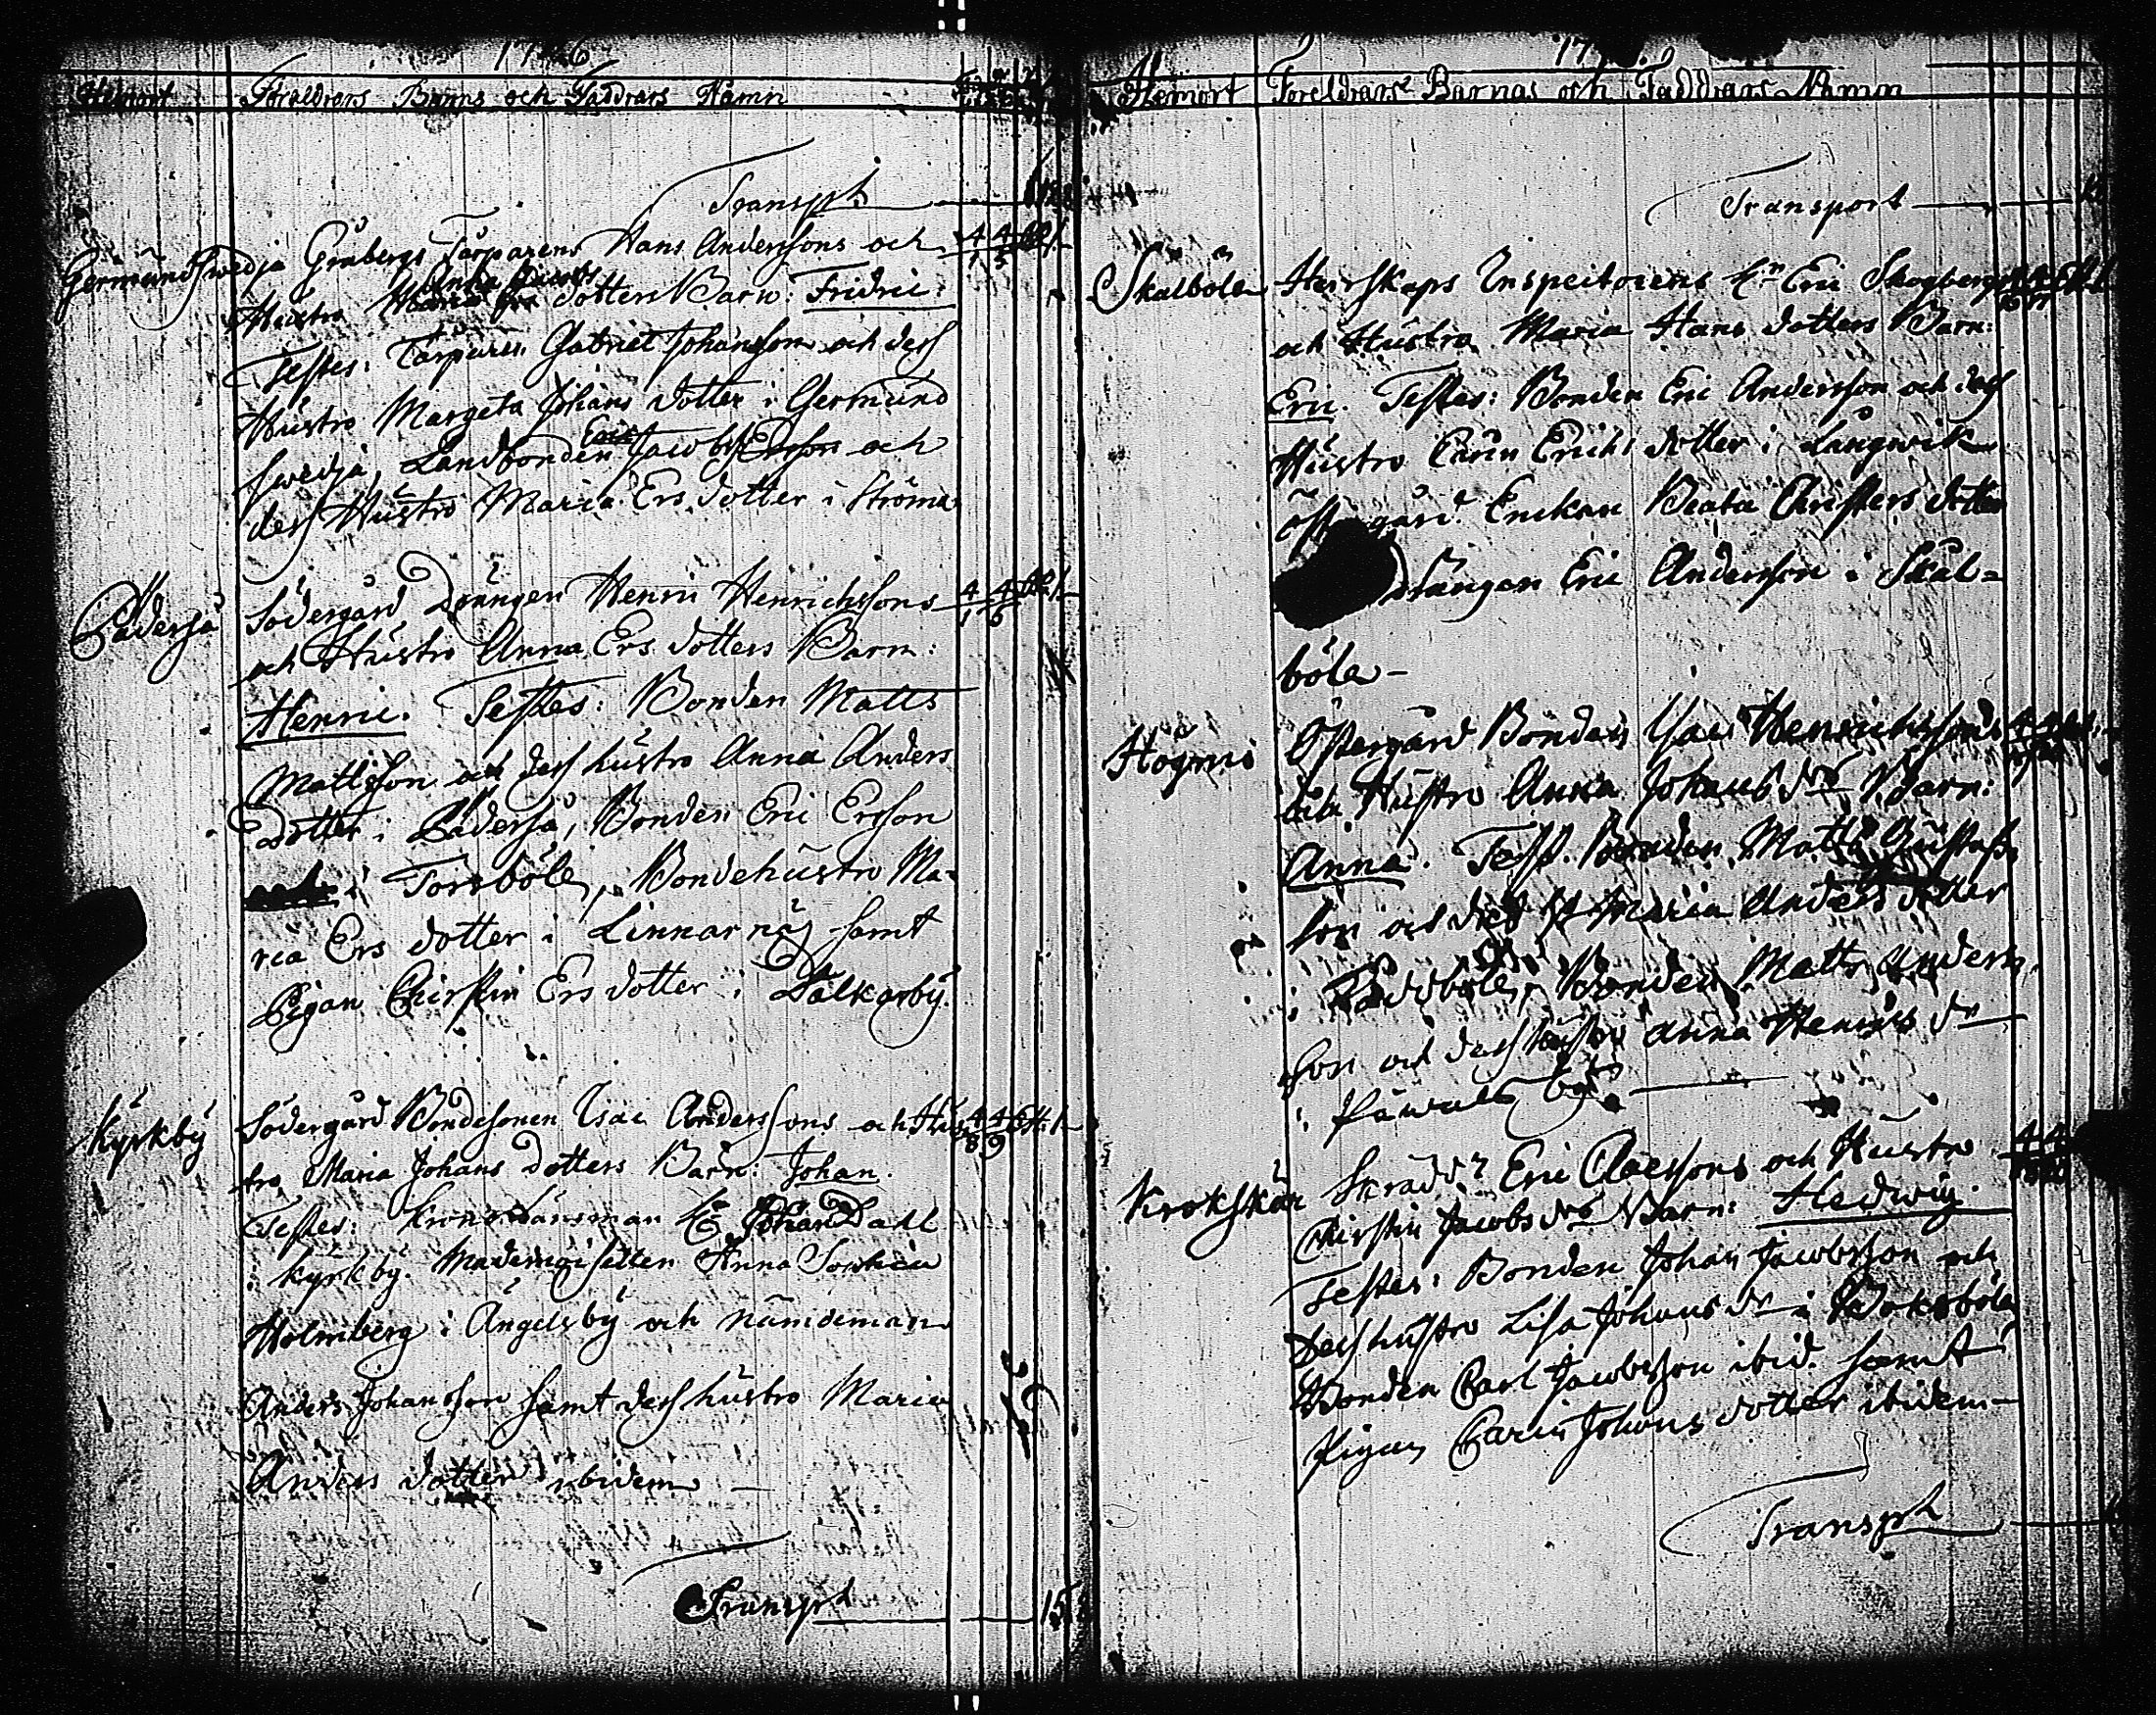 Hemort Föräldrars Barns och Faddrars Namn
Transprt
Germundswedja Grabergs Torparens Hans Anderssons och 4/1 4/5
Anna Jacobs
Hustro dotters Barn: Fridric.
Testes: Torparen Gabriel Johansson och dess
Hustro Margeta Johans dotter i Germund
Eric
swedja, Landbonden Jacobss och
dess Hustro Maria Ers dotter i Ströma
Päderså Södergård Drängen Henric Henrichssons 4/1 4/6
och Hustro Anna Ers dotters Barn:
Henric. Testes: Bonden Matts
Mattsson och dess hustro Anna Anders
dotter i Päderså, Bonden Eric Ersson
i Torsböle, Bondehustro Ma-
ria Ers dotter i Linnarnäs samt
Pigan Chirstin Ers dotter i Dalkarby.
Kyrkby Södergård Bondesonen Isac Anderssons och Hus- 4/8 4/9
tro Maria Johans dotters Barn: Johan.
Testes: Krono Länsman Johan Dahl
i Kyrkby. Mademoisellen Anna
Holmberg i Ängelsby och nämdeman
Anders Johansson samt dess hustro Maria
Anders dotter ibidem
Transprt 15
Hemort Föreldrars Barnas och Faddrars Namn
Transport
Skålböle Herrskaps Inspectorens Hr Eric Skogbergs
och Hustro Maria Hans dotters Barn:
Eric. Testes: Bonden Eric Andersson och dess
Hustro Carin Erichs dotter i Långwik
Enckan Beata Christers dotter
Eric Andersson i Skål=
böle -
Högmo Östergård Bonden Isac Henrichssons
och Hustro Anna Johans drs Barn:
Anna. Test. Bonden Matts Gustafs
son och dess H. Maria Anders dotter
i Bonden Matts Anders
son och dess hustro Anna Henrics dr
i by
Krokskär Skradd. Eric Claessons och Hustro
Chirstin Jacobs drs Barn: Hedwig.
Testes: Bonden Johan Jacobsson och
Dess hustro Lisa Johans dr i Boksböle
Bonden Carl Jacobsson ibid. samt
Pigan Carin Johans dotter ibidem-
Transprt